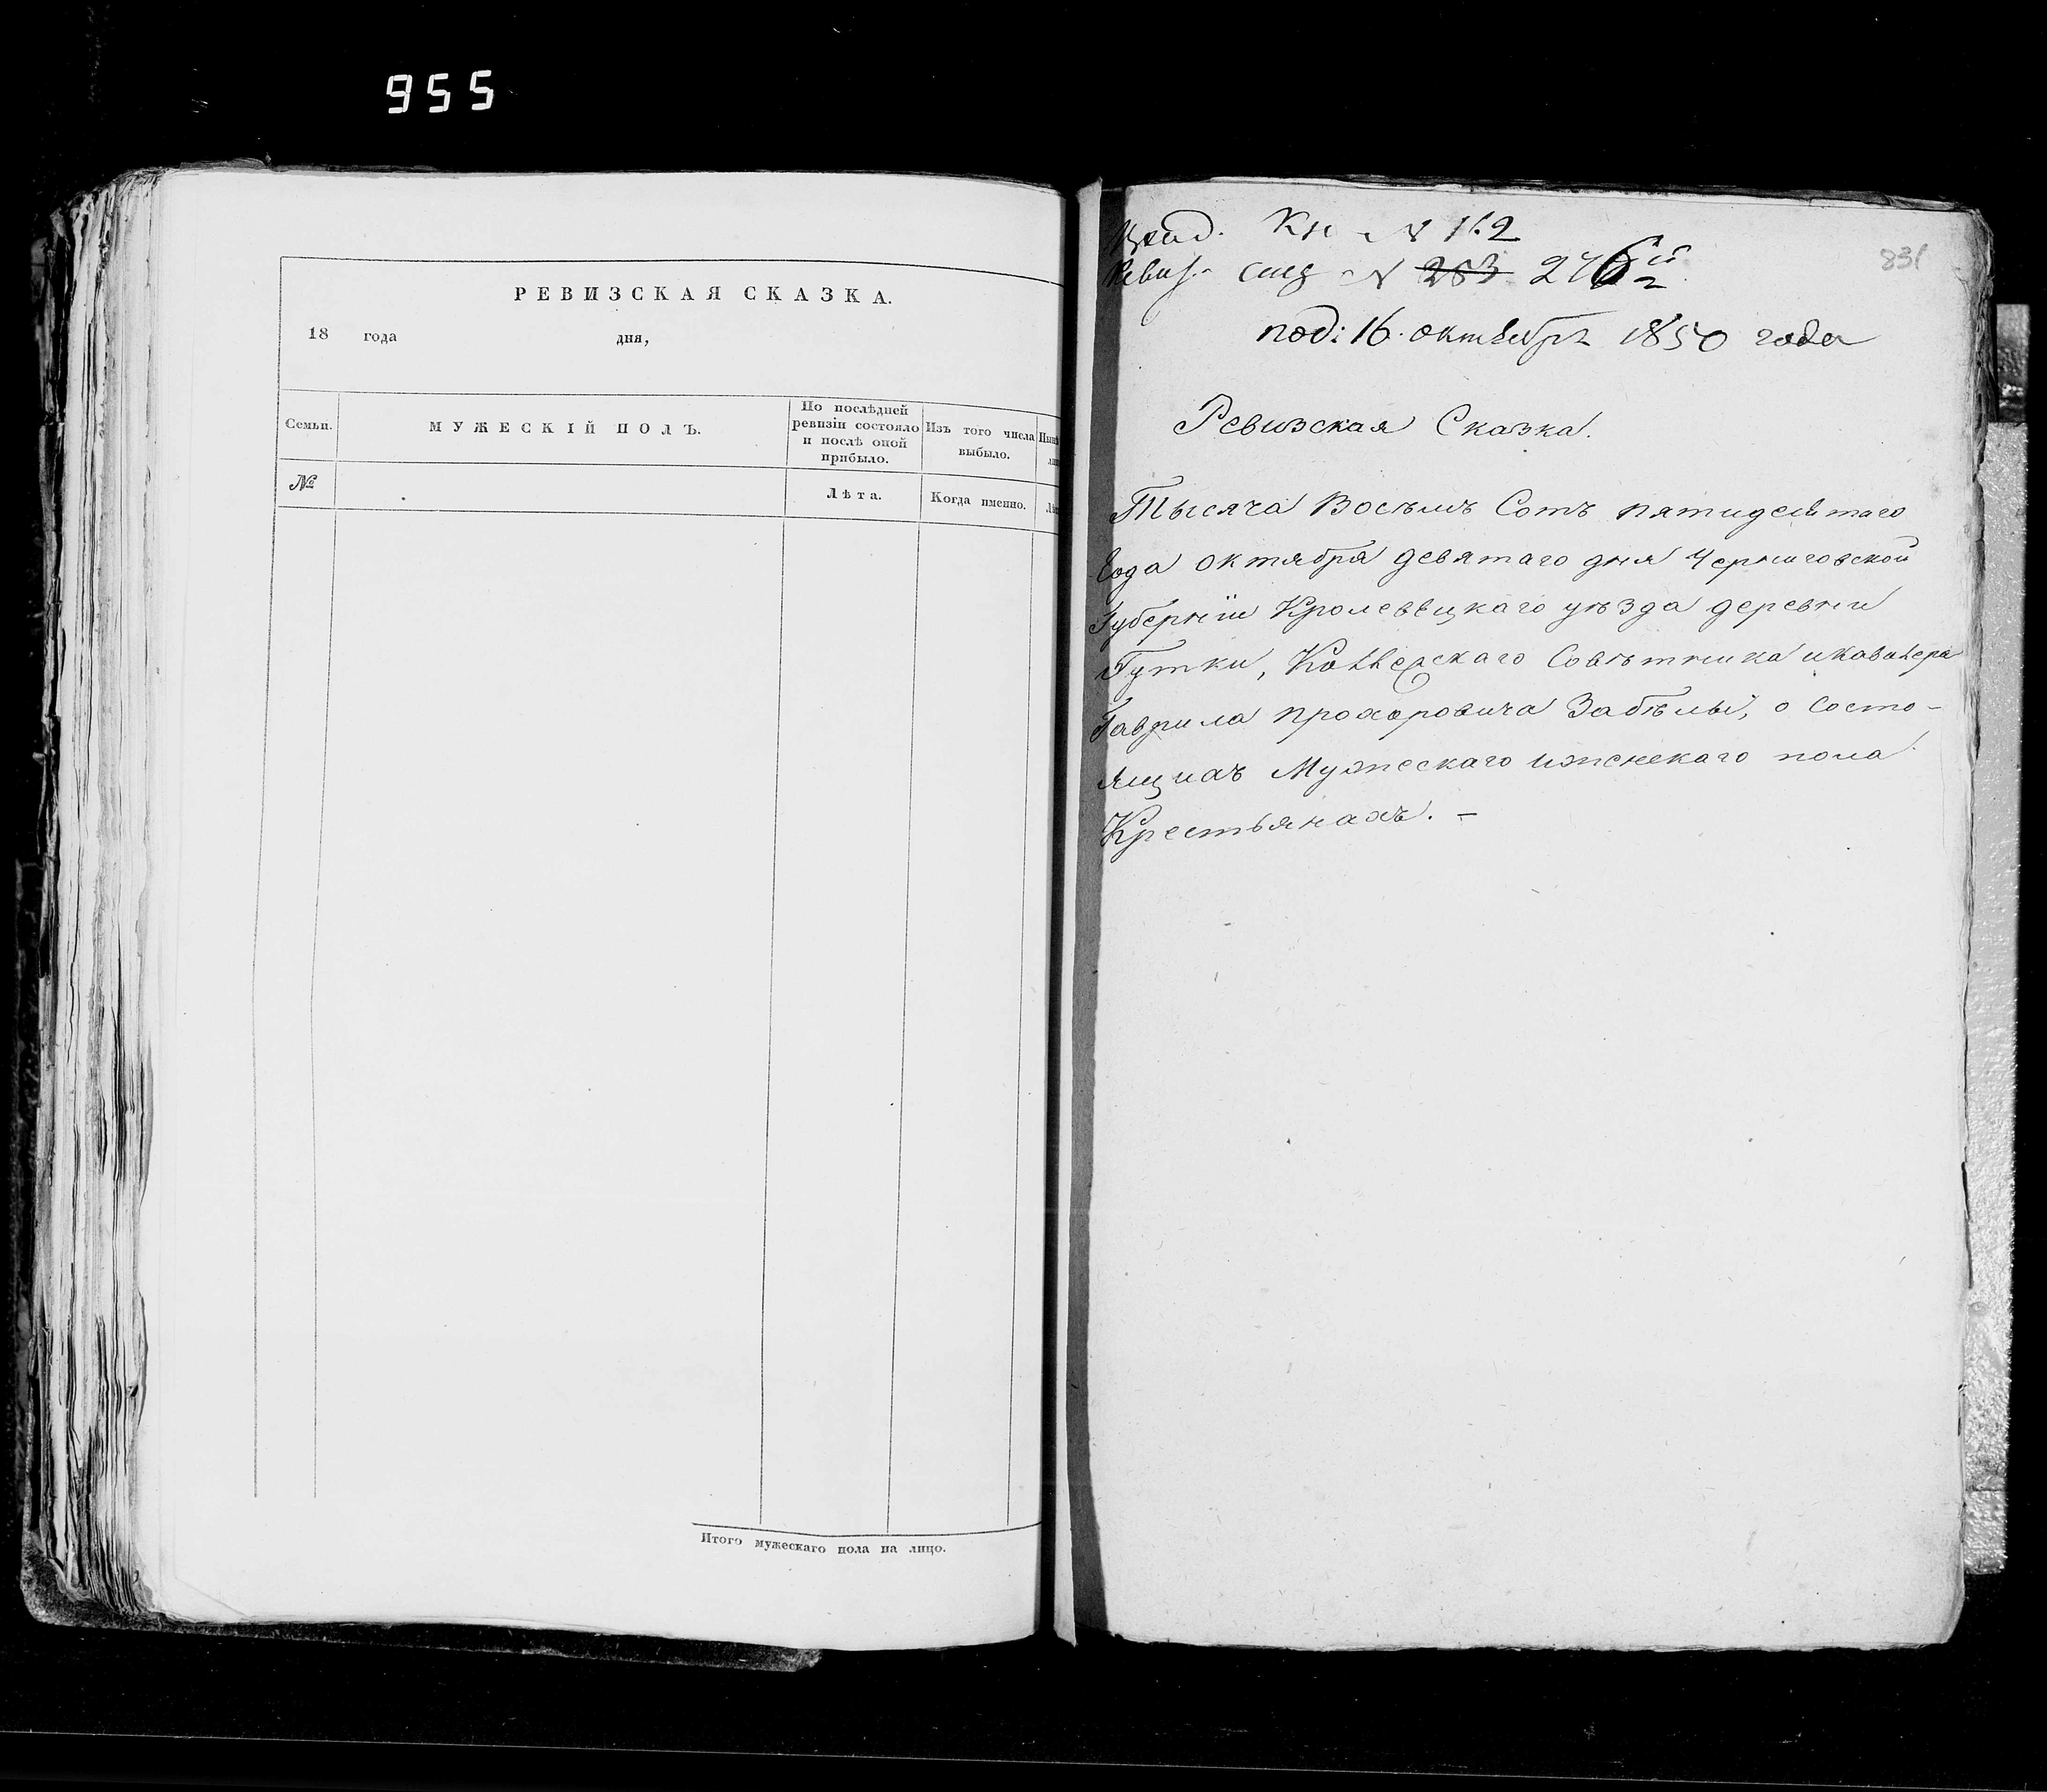 955
РЕВИЗСКАЯ СКАЗКА.
18 года дня,
Семьи.
МУЖЕСКІЙ ПОЛЪ.
По послѣдней
ревизіи состояло
и послѣ оной
прибыло.
Изъ того числа
выбыло.
№
Лѣта.
Когда именно.
Итого мужескаго пола на лицо.
Кн N 112
N 253 276й
831
под: 16. октября 1850 года
Ревизская Сказка.
Тысяча Восѣмъ Сотъ пятидесятаго
Года октября девятаго дня Черниговской
Губерніи Кролевѣцкаго уѣзда деревни
Гутки, Коллежскаго Совѣтника и кавалера
Гаврила Прохоровича Забѣлы, о состо-
ящихъ Мужескаго и женскаго пола
Крестьянахъ. –